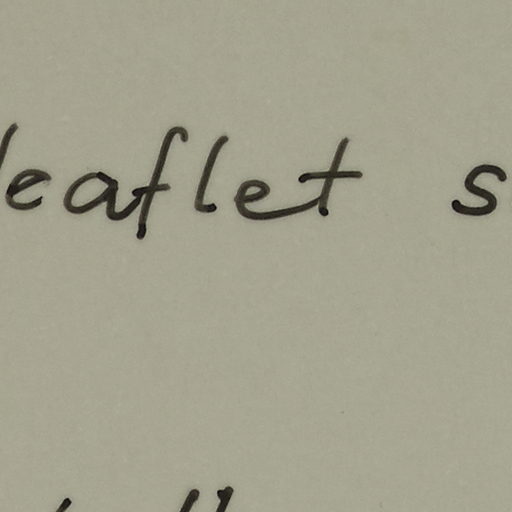 leaflet s